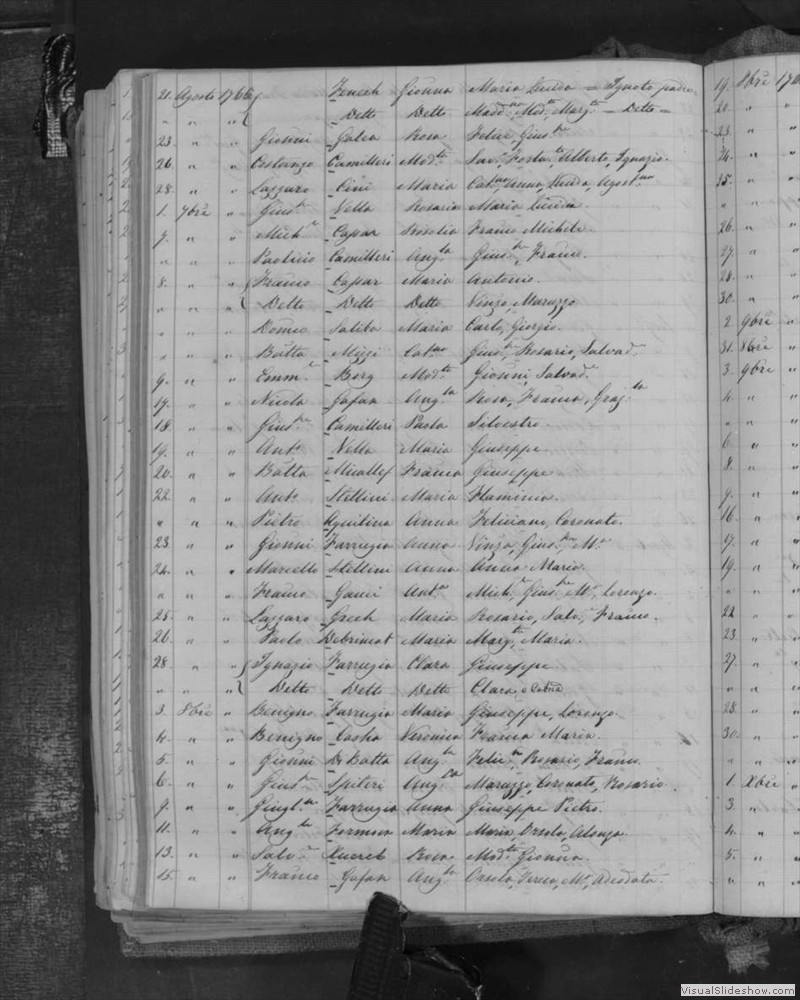 21. Agosto 1766 { Zenech Gionna Maria Lucia = Ignoto padre
" " " { Detto Detto Madd.na Mod.ta Marg.ta — Detto =
23. " " Gionni Galea Rosa Felice Gius.e
26. " " Costanzo Camilleri Mod.ta Sav. Fortu.to Alberto, Ignazio.
28. " " Lazzaro Cini Maria Cat.na Anna, Lucia, Agost.no
1. 7bre " Gius.e Vella Rosaria Maria Lucia
7. " " Mich.e Caspar Rosolia Franco Michele
" " " Paolucio Camilleri Ang.la Gius.e, Franco.
8. " " { Franco Caspar Maria Antonio.
" " " { Detto Detto Detto Vinzo, Maruzzo
" " " Domco Saliba Maria Carlo, Giorgio.
" " " Batta Mizzi Cat.na Gius.e, Rosario, Salvad.e
9. " " Emm.e Borg Mod.ta Gionni, Salvad.e
17. " " Nicola Gafan Ang.la Rosa, Franca, Graz.la
18. " " Gius.e Camilleri Paola Silvestro.
19. " " Ant.o Vella Maria Giuseppe
20. " " Batta Micallef Franca Giuseppe
22. " " Ant.o Stellini Maria Flaminia.
" " " Pietro Aquilina Anna Feliciano, Coronato.
23. " " Gionni Farrugia Anna Vinza, Gius.a M.a
24. " " Marcello Stellini Anna Anna Maria.
" " " Franco Gauci Ant.a Mich.e, Gius.e M.a, Lorenzo.
25. " " Lazzaro Grech Maria Rosario, Salv.e, Franco.
26. " " Paolo Debrincat Maria Marg.ta, Maria.
28. " " { Ignazio Farrugia Clara Giuseppe
" " " { Detto Detto Detto Clara, e Catna
3. 8bre " Benigno Farrugia Maria Giuseppe, Lorenzo.
4. " " Benigno Casha Veronica Franca Maria.
5. " " Gionni Di Batta Ang.la Felic.ta, Rosario, Franco.
6. " " Gius.e Spiteri Ang.la Maruzzo, Coronato, Rosario.
9. " " Farrugia Anna Giuseppe Pietro.
11. " " Ang.lo Formosa Maria Maria, Orsola, Alonza.
13. " " Salv.e Xuereb Rosa Mod.ta Gionna.
15. " " Franco Gafan Ang.la Orsola, Teresa, M.a, Adeodata.
19. 8bre 176
20. " "
23. " "
24. " "
25. " "
" " "
26. " "
27. " "
28. " "
30. " "
2. 9bre "
31. 8bre "
3. 9bre "
4. " "
" " "
6 " "
8. " "
9. " "
16. " "
17. " "
19. " "
" " "
22 " "
23. " "
27. " "
" " "
28. " "
30. " "
" " "
1. Xbre "
3. " "
4. " "
5. " "
" " "
VisualSlideshow.com